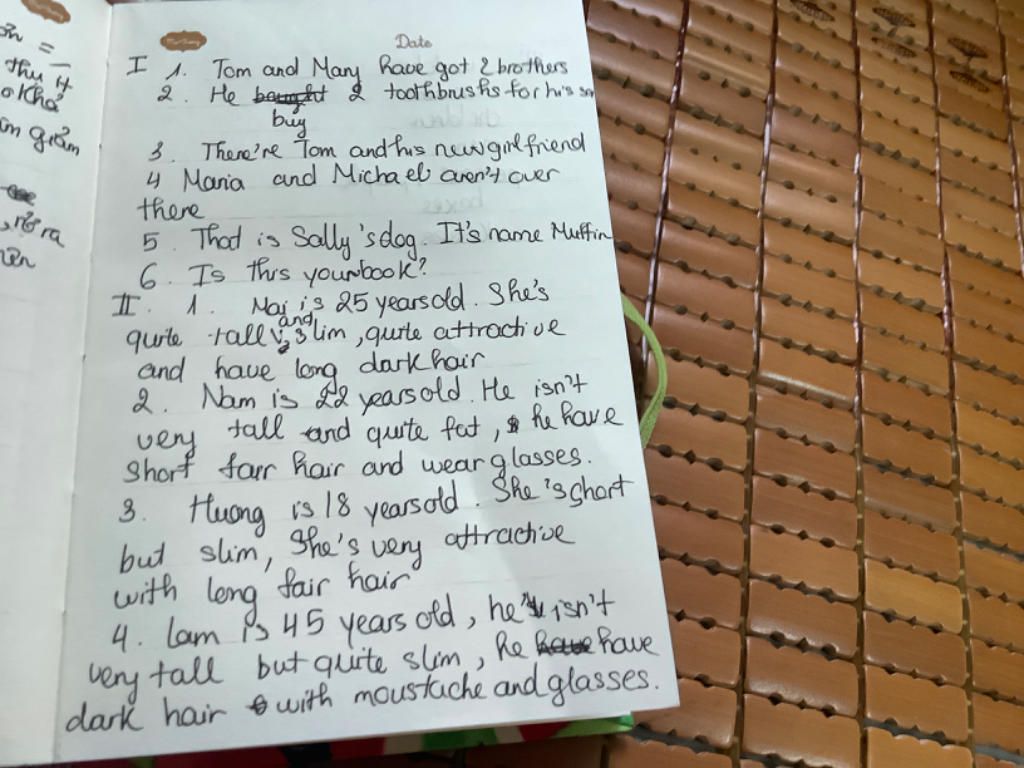 ơn =
thu H
khá
ần giảm
, rõ ra
Date
I 1. Tom and Mary have got 2 brothers
2. He bought 2 toothbrushs for his
buy
3. There're Tom and his new girlfriend
4 Maria and Michael aren't over
there
5. That is Sally's dog. It's name Muffin
6. Is this your book?
II. 1. Mai is 25 years old. She's
and
quite tall, slim, quite attractive
and have long dark hair
2. Nam is 22 years old. He isn't
very tall and quite fat, he have
short fair hair and wear glasses.
3. Huong is 18 years old. She's short
but slim, She's very attractive
with long fair hair
4. Lam is 45 years old, he isn't
very tall but quite slim, he have have
dark hair with moustache and glasses.